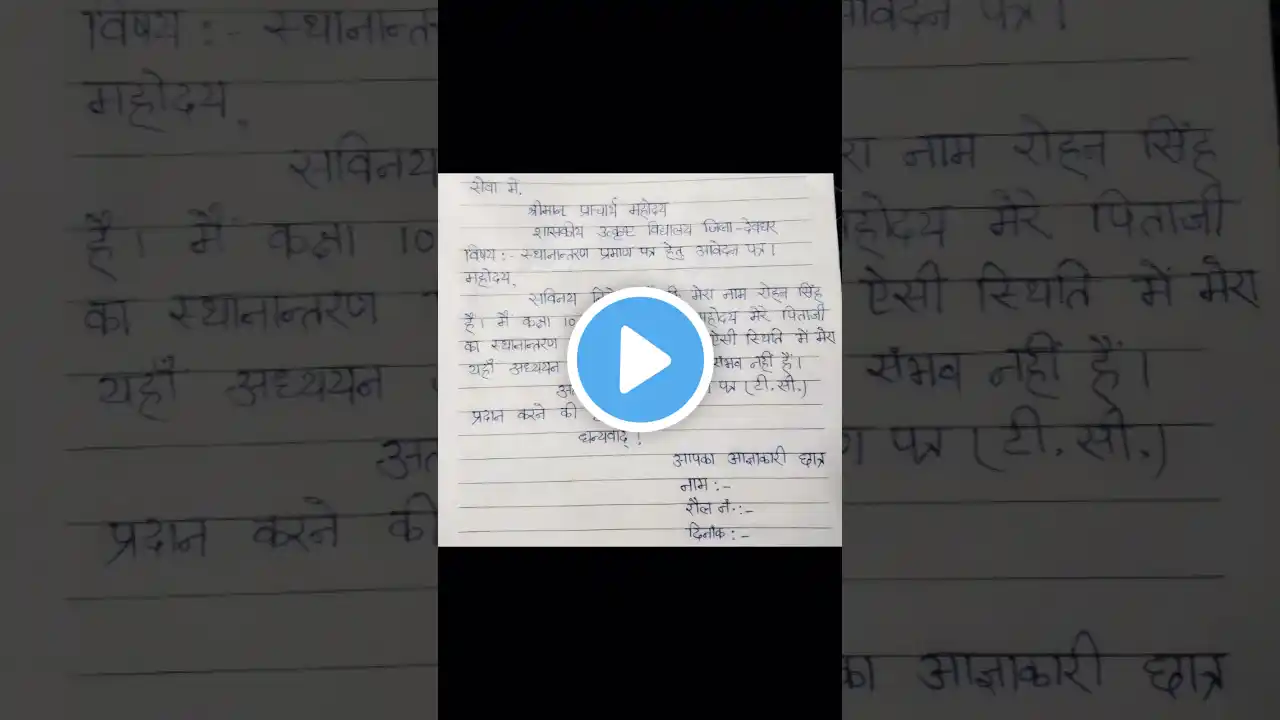 सेवा में,
श्रीमान् प्राचार्य महोदय
शासकीय उत्कृष्ट विद्यालय जिला-देवघर
विषय :- स्थानान्तरण प्रमाण पत्र हेतु आवेदन पत्र।
महोदय,
सविनय मेरा नाम रोहन सिंह
है। मैं कक्षा 10 महोदय मेरे पिताजी
का स्थानान्तरण ऐसी स्थिति में मेरा
यहाँ अध्ययन संभव नहीं हैं।
पत्र (टी.सी.)
प्रदान करने की
धन्यवाद्!
आपका आज्ञाकारी छात्र
नाम :-
रौल नं. :-
दिनांक :-